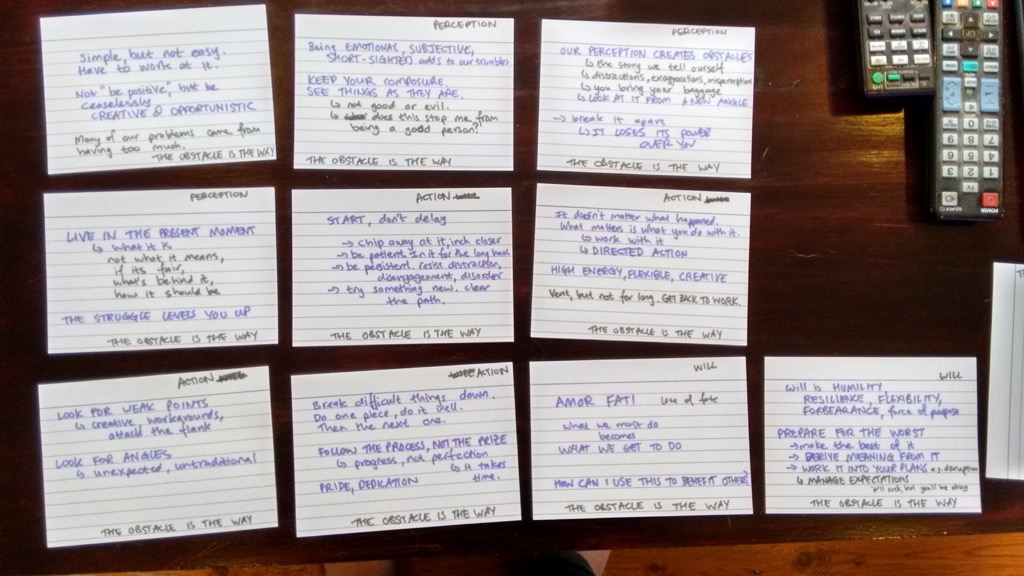 Simple, but not easy.
Have to work at it.
Not "be positive", but be
ceaselessly
CREATIVE & OPPORTUNISTIC
Many of our problems come from
having too much.
THE OBSTACLE IS THE WAY
PERCEPTION
Being EMOTIONAL, SUBJECTIVE,
SHORT-SIGHTED adds to our troubles
KEEP YOUR COMPOSURE.
SEE THINGS AS THEY ARE.
↳ not good or evil.
↳ does this stop me from
being a good person?
THE OBSTACLE IS THE WAY
PERCEPTION
OUR PERCEPTION CREATES OBSTACLES
↳ the story we tell ourself
↳ distractions, exaggerations, misperceptions
↳ you bring your baggage
↳ LOOK AT IT FROM A NEW ANGLE
→ break it apart
↳ IT LOSES ITS POWER
OVER YOU
THE OBSTACLE IS THE WAY
PERCEPTION
LIVE IN THE PRESENT MOMENT
↳ what it is
not what it means,
if its fair,
what's behind it,
how it should be
THE STRUGGLE LEVELS YOU UP
THE OBSTACLE IS THE WAY
ACTION
START, don't delay
→ chip away at it, inch closer
→ be patient. In it for the long haul
→ be persistent. resist distraction,
disengagement, disorder
→ try something new. clear
the path.
THE OBSTACLE IS THE WAY
ACTION
It doesn't matter what happened.
What matters is what you do with it.
↳ work with it
↳ DIRECTED ACTION
HIGH ENERGY, FLEXIBLE, CREATIVE
Vent, but not for long. GET BACK TO WORK.
THE OBSTACLE IS THE WAY
ACTION
LOOK FOR WEAK POINTS
↳ creative, workarounds,
attack the flank
LOOK FOR ANGLES
↳ unexpected, untraditional
THE OBSTACLE IS THE WAY
ACTION
Break difficult things down.
Do one piece, do it well.
Then the next one.
FOLLOW THE PROCESS, NOT THE PRIZE
↳ progress, not perfection
↳ it takes
time.
PRIDE, DEDICATION
THE OBSTACLE IS THE WAY
WILL
AMOR FATI love of fate
what we must do
becomes
WHAT WE GET TO DO
HOW CAN I USE THIS TO BENEFIT OTHERS?
THE OBSTACLE IS THE WAY
WILL
Will is HUMILITY,
RESILIENCE, FLEXIBILITY,
FORBEARANCE, force of purpose
PREPARE FOR THE WORST
→ make the best of it
→ DERIVE MEANING FROM IT
→ WORK IT INTO YOUR PLANS e.g. disruption
↳ MANAGE EXPECTATIONS
it'll suck, but you'll be okay
THE OBSTACLE IS THE WAY
POWER